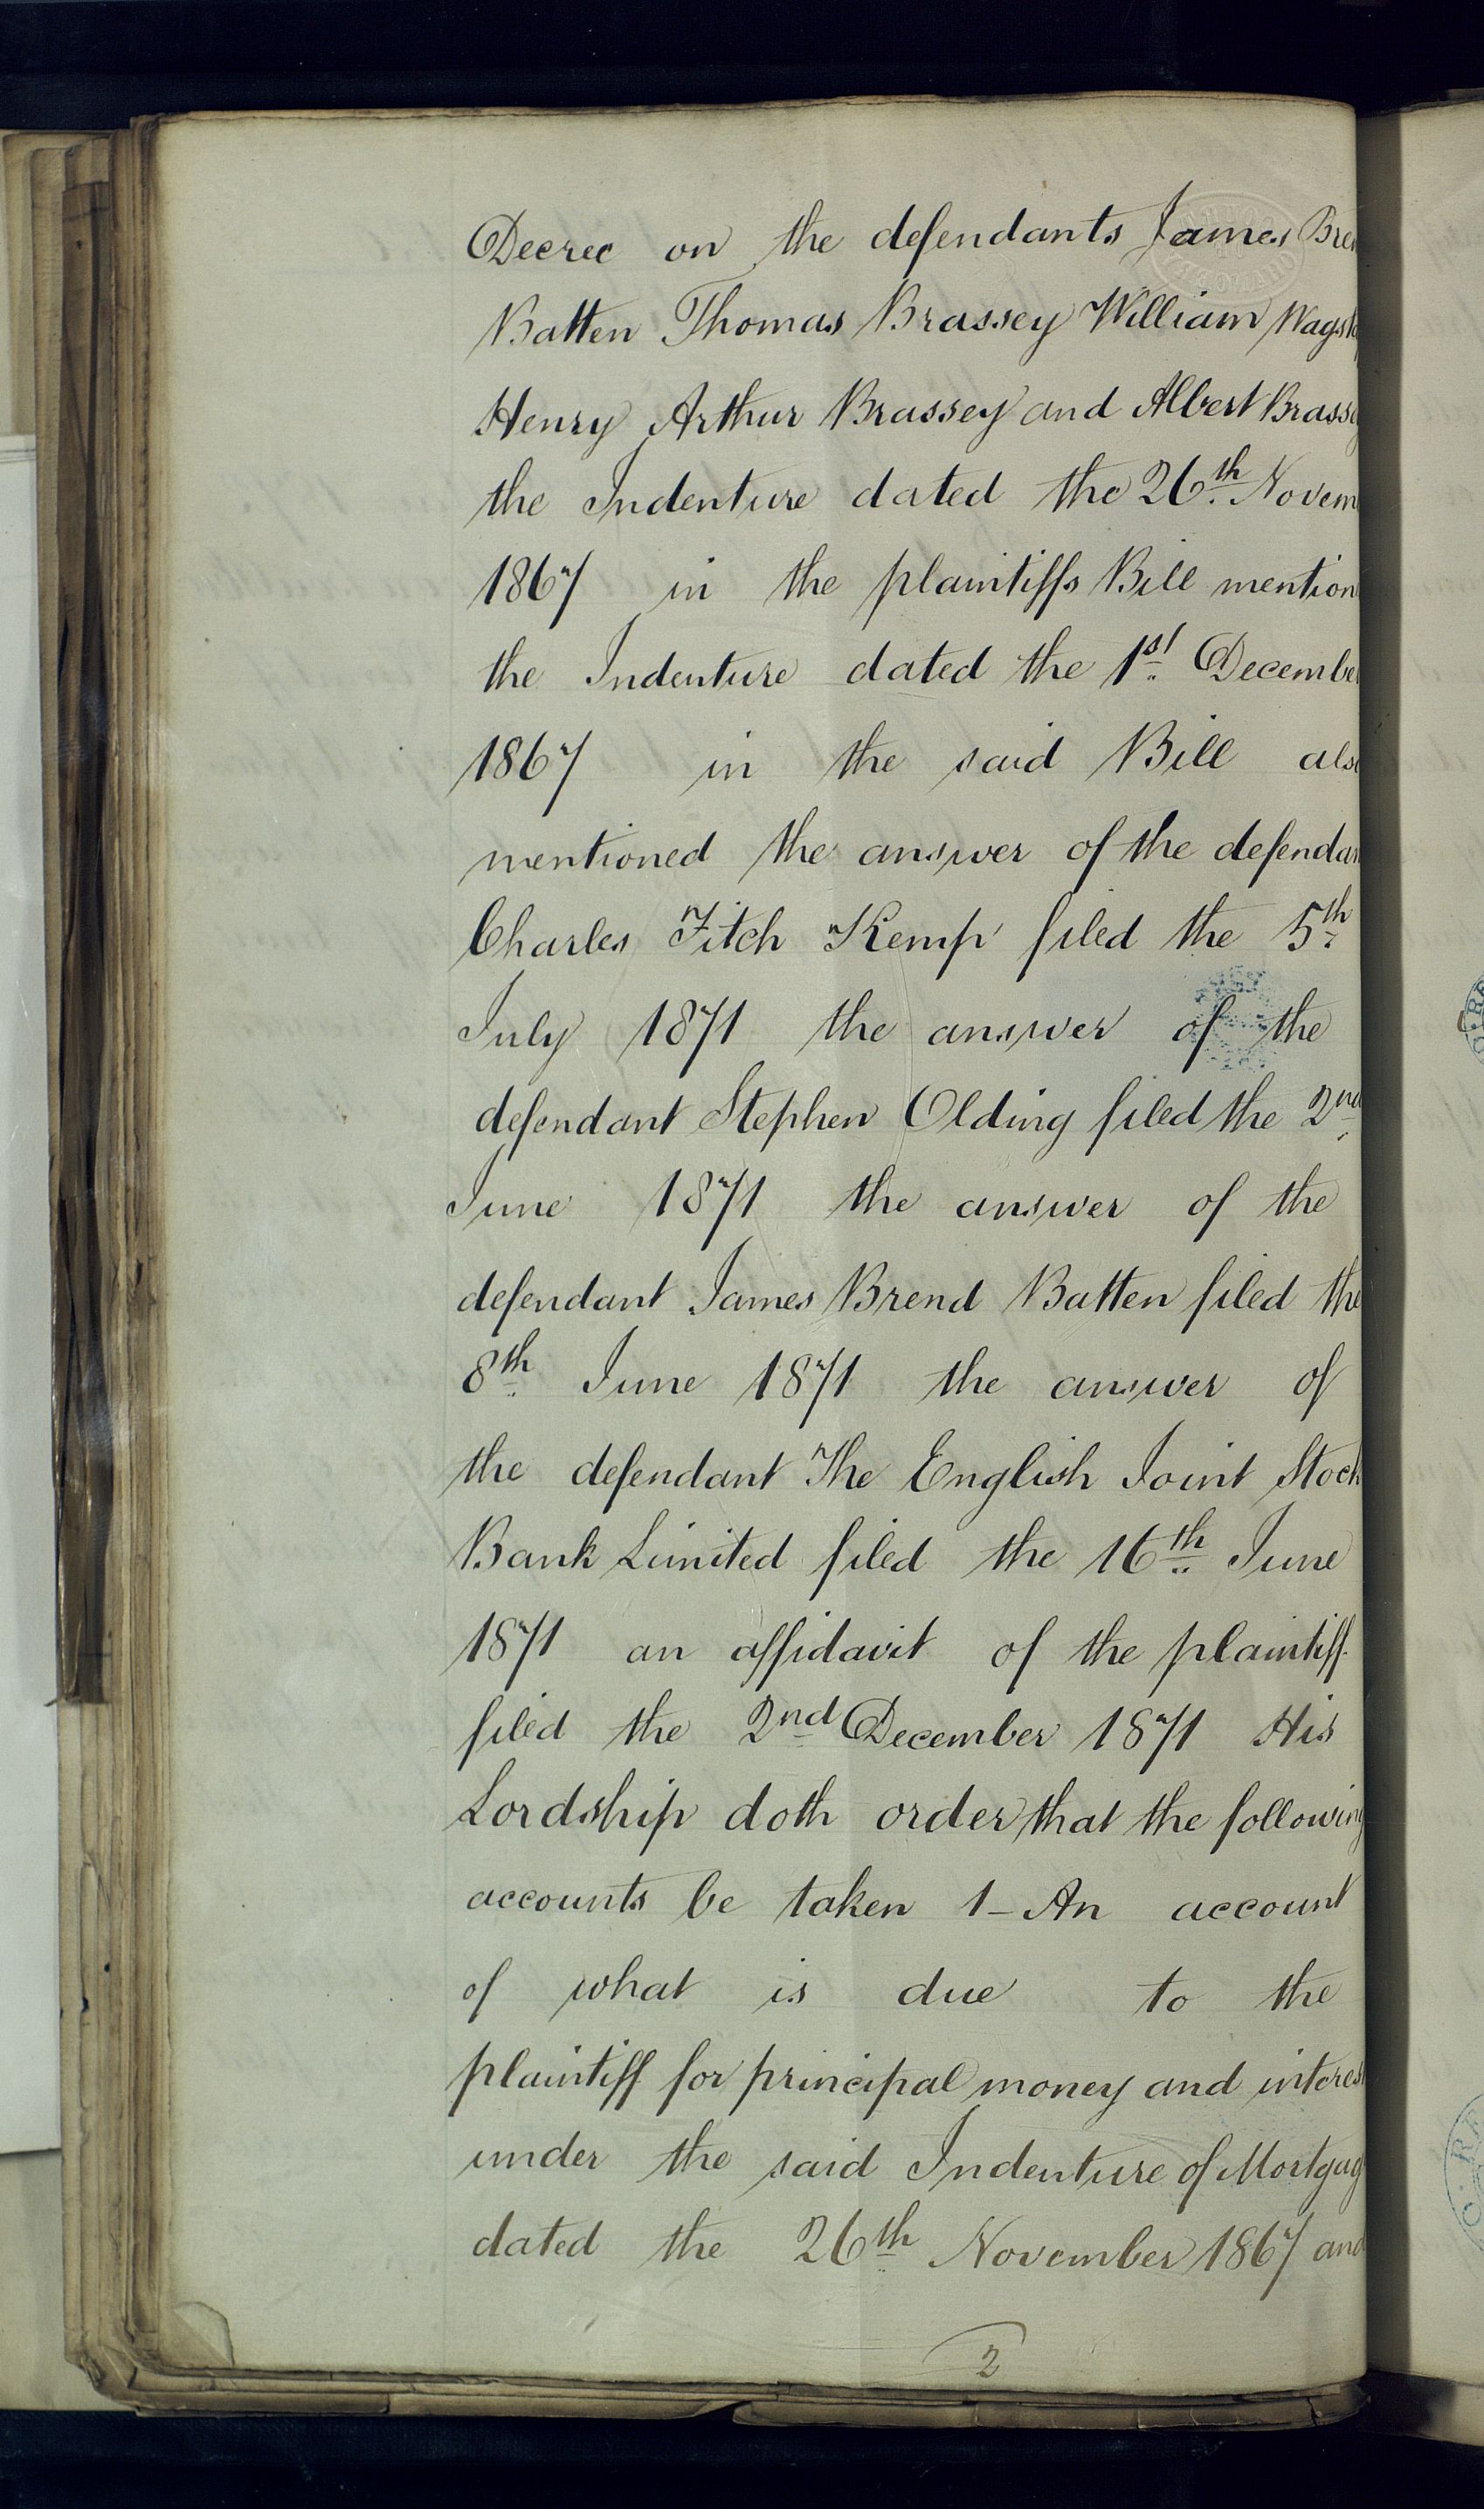 Decree on the defendants James Bre
Batten Thomas Brassey William Wagst
Henry Arthur Brassey and Albert Brasse
the Indenture dated the 26th Novem
1867 in the plaintiffs Bill mention
the Indenture dated the 1st December
1867 in the said Bill also
mentioned the answer of the defendan
Charles Fitch Kemp filed the 5th
July 1871 the answer of the
defendant Stephen Olding filed the 2nd
June 1871 the answer of the
defendant James Brend Batten filed the
8th June 1871 the answer of
the defendant The English Joint Stock
Bank Limited filed the 16th June
1871 an affidavit of the plaintiff
filed the 2nd December 1871 His
Lordship doth order that the following
accounts be taken 1 – An account
of what is due to the
plaintiff for principal money and interest
under the said Indenture of Mortgag
dated the 26th November 1867 and
2